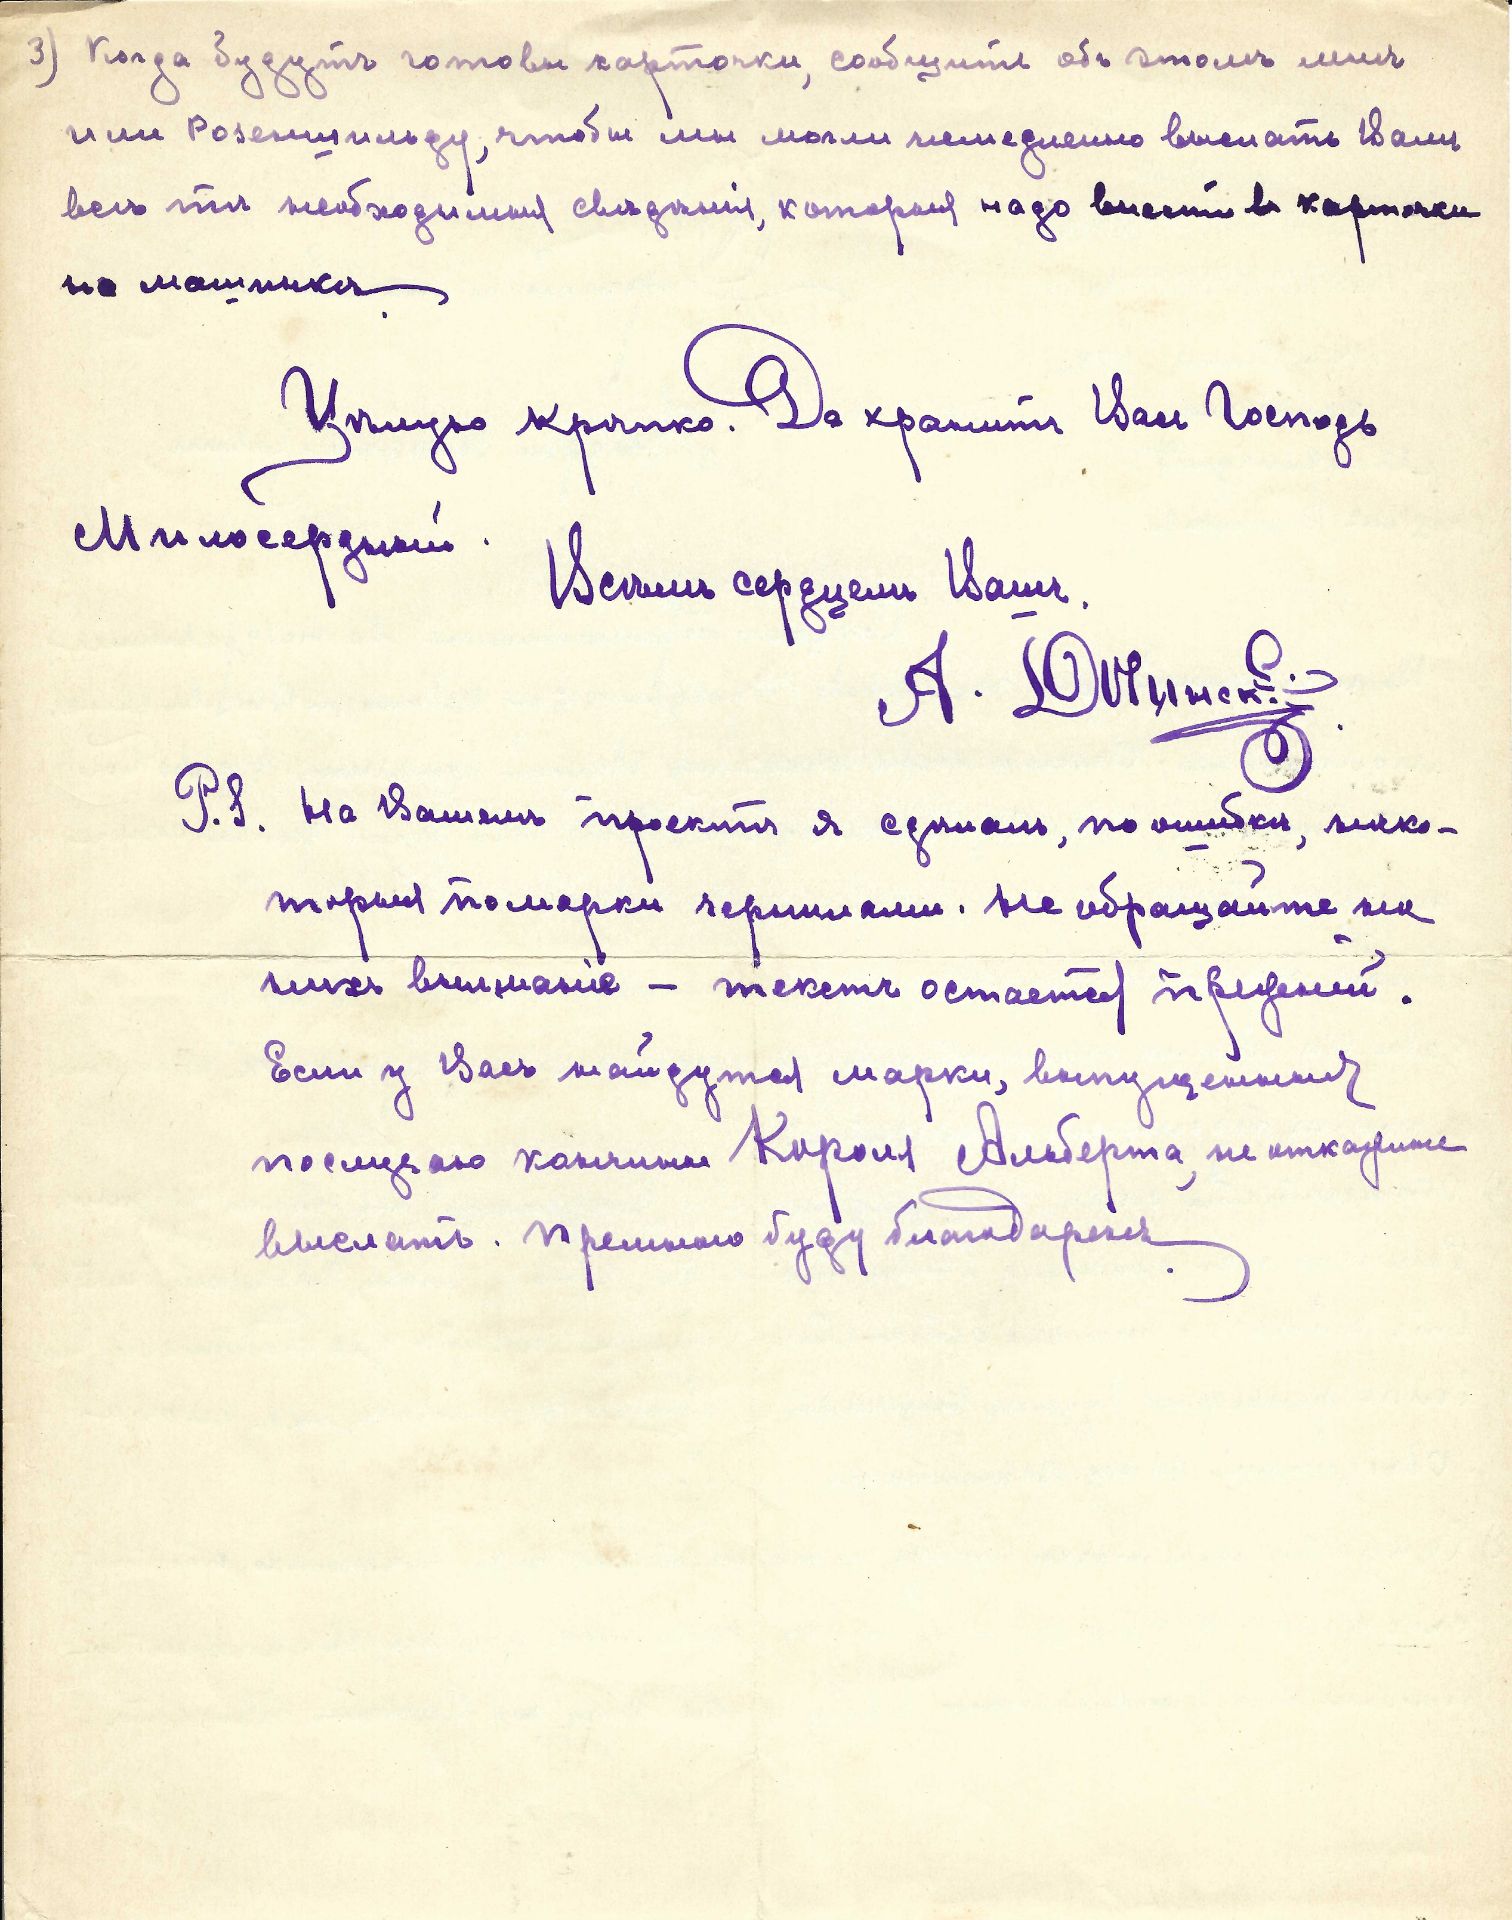 3) Когда будутъ готовы карточки, сообщите объ этомъ мнѣ
или Розеншильду, чтобы мы могли немедленно выслать Вамъ
всѣ тѣ необходимыя свѣдѣнія, которыя надо внести въ карточки
на машинкѣ.
Цѣлую крѣпко. Да хранитъ Васъ Господь
Милосердный.
Всѣмъ сердцемъ Вашъ.
А.
P.S. На Вашемъ проектѣ я сдѣлалъ, по ошибкѣ, нѣко-
торыя помарки чернилами. Не обращайте на
нихъ вниманіе — текстъ остается прежній.
Если у Васъ найдутся марки, выпущенныя
послѣ кончины Короля Альберта, не откажите
выслать. Премного буду благодаренъ.